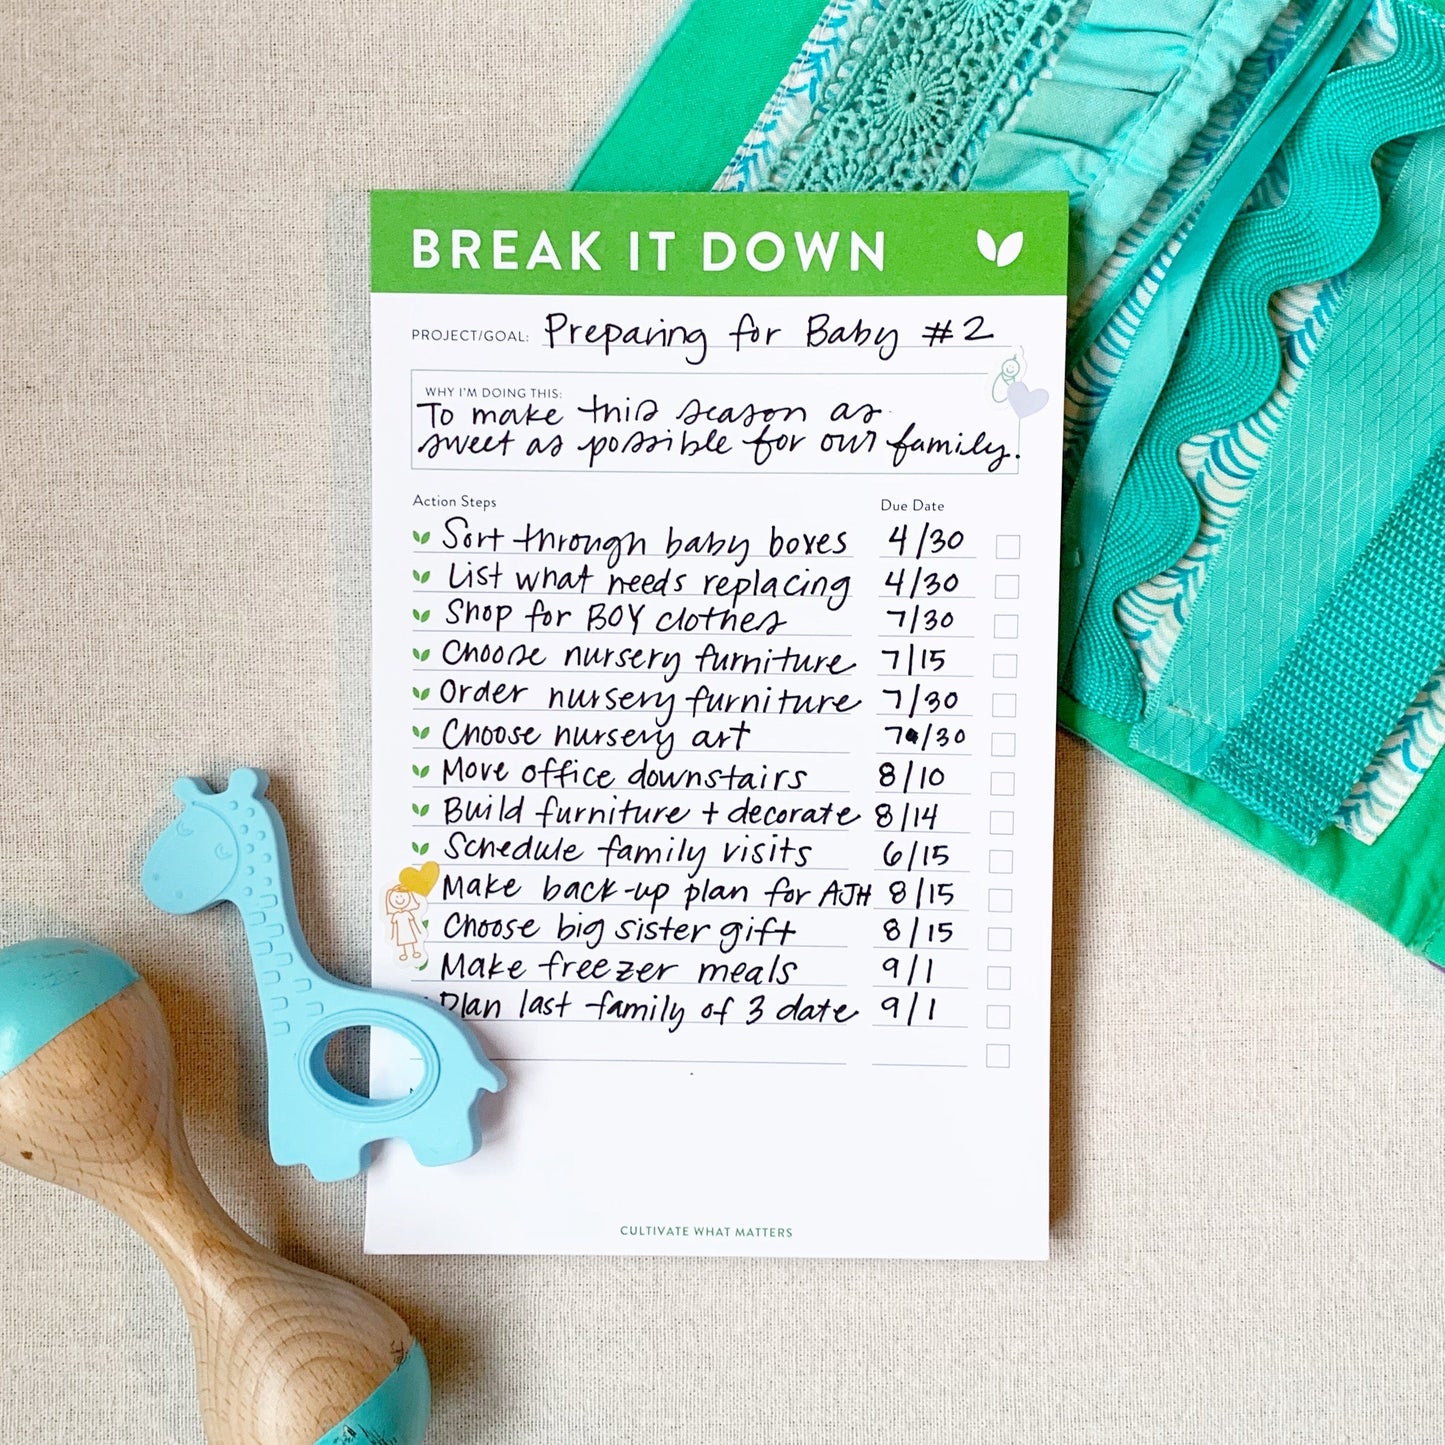 BREAK IT DOWN
PROJECT/GOAL: Preparing for Baby #2
WHY I'M DOING THIS:
To make this season as
sweet as possible for our family.
Action Steps Due Date
Sort through baby boxes 4/30
List what needs replacing 4/30
Shop for BOY clothes 7/30
Choose nursery furniture 7/15
Order nursery furniture 7/30
Choose nursery art 7/30
Move office downstairs 8/10
Build furniture + decorate 8/14
Schedule family visits 6/15
Make back-up plan for AJH 8/15
Choose big sister gift 8/15
Make freezer meals 9/1
Plan last family of 3 date 9/1
CULTIVATE WHAT MATTERS